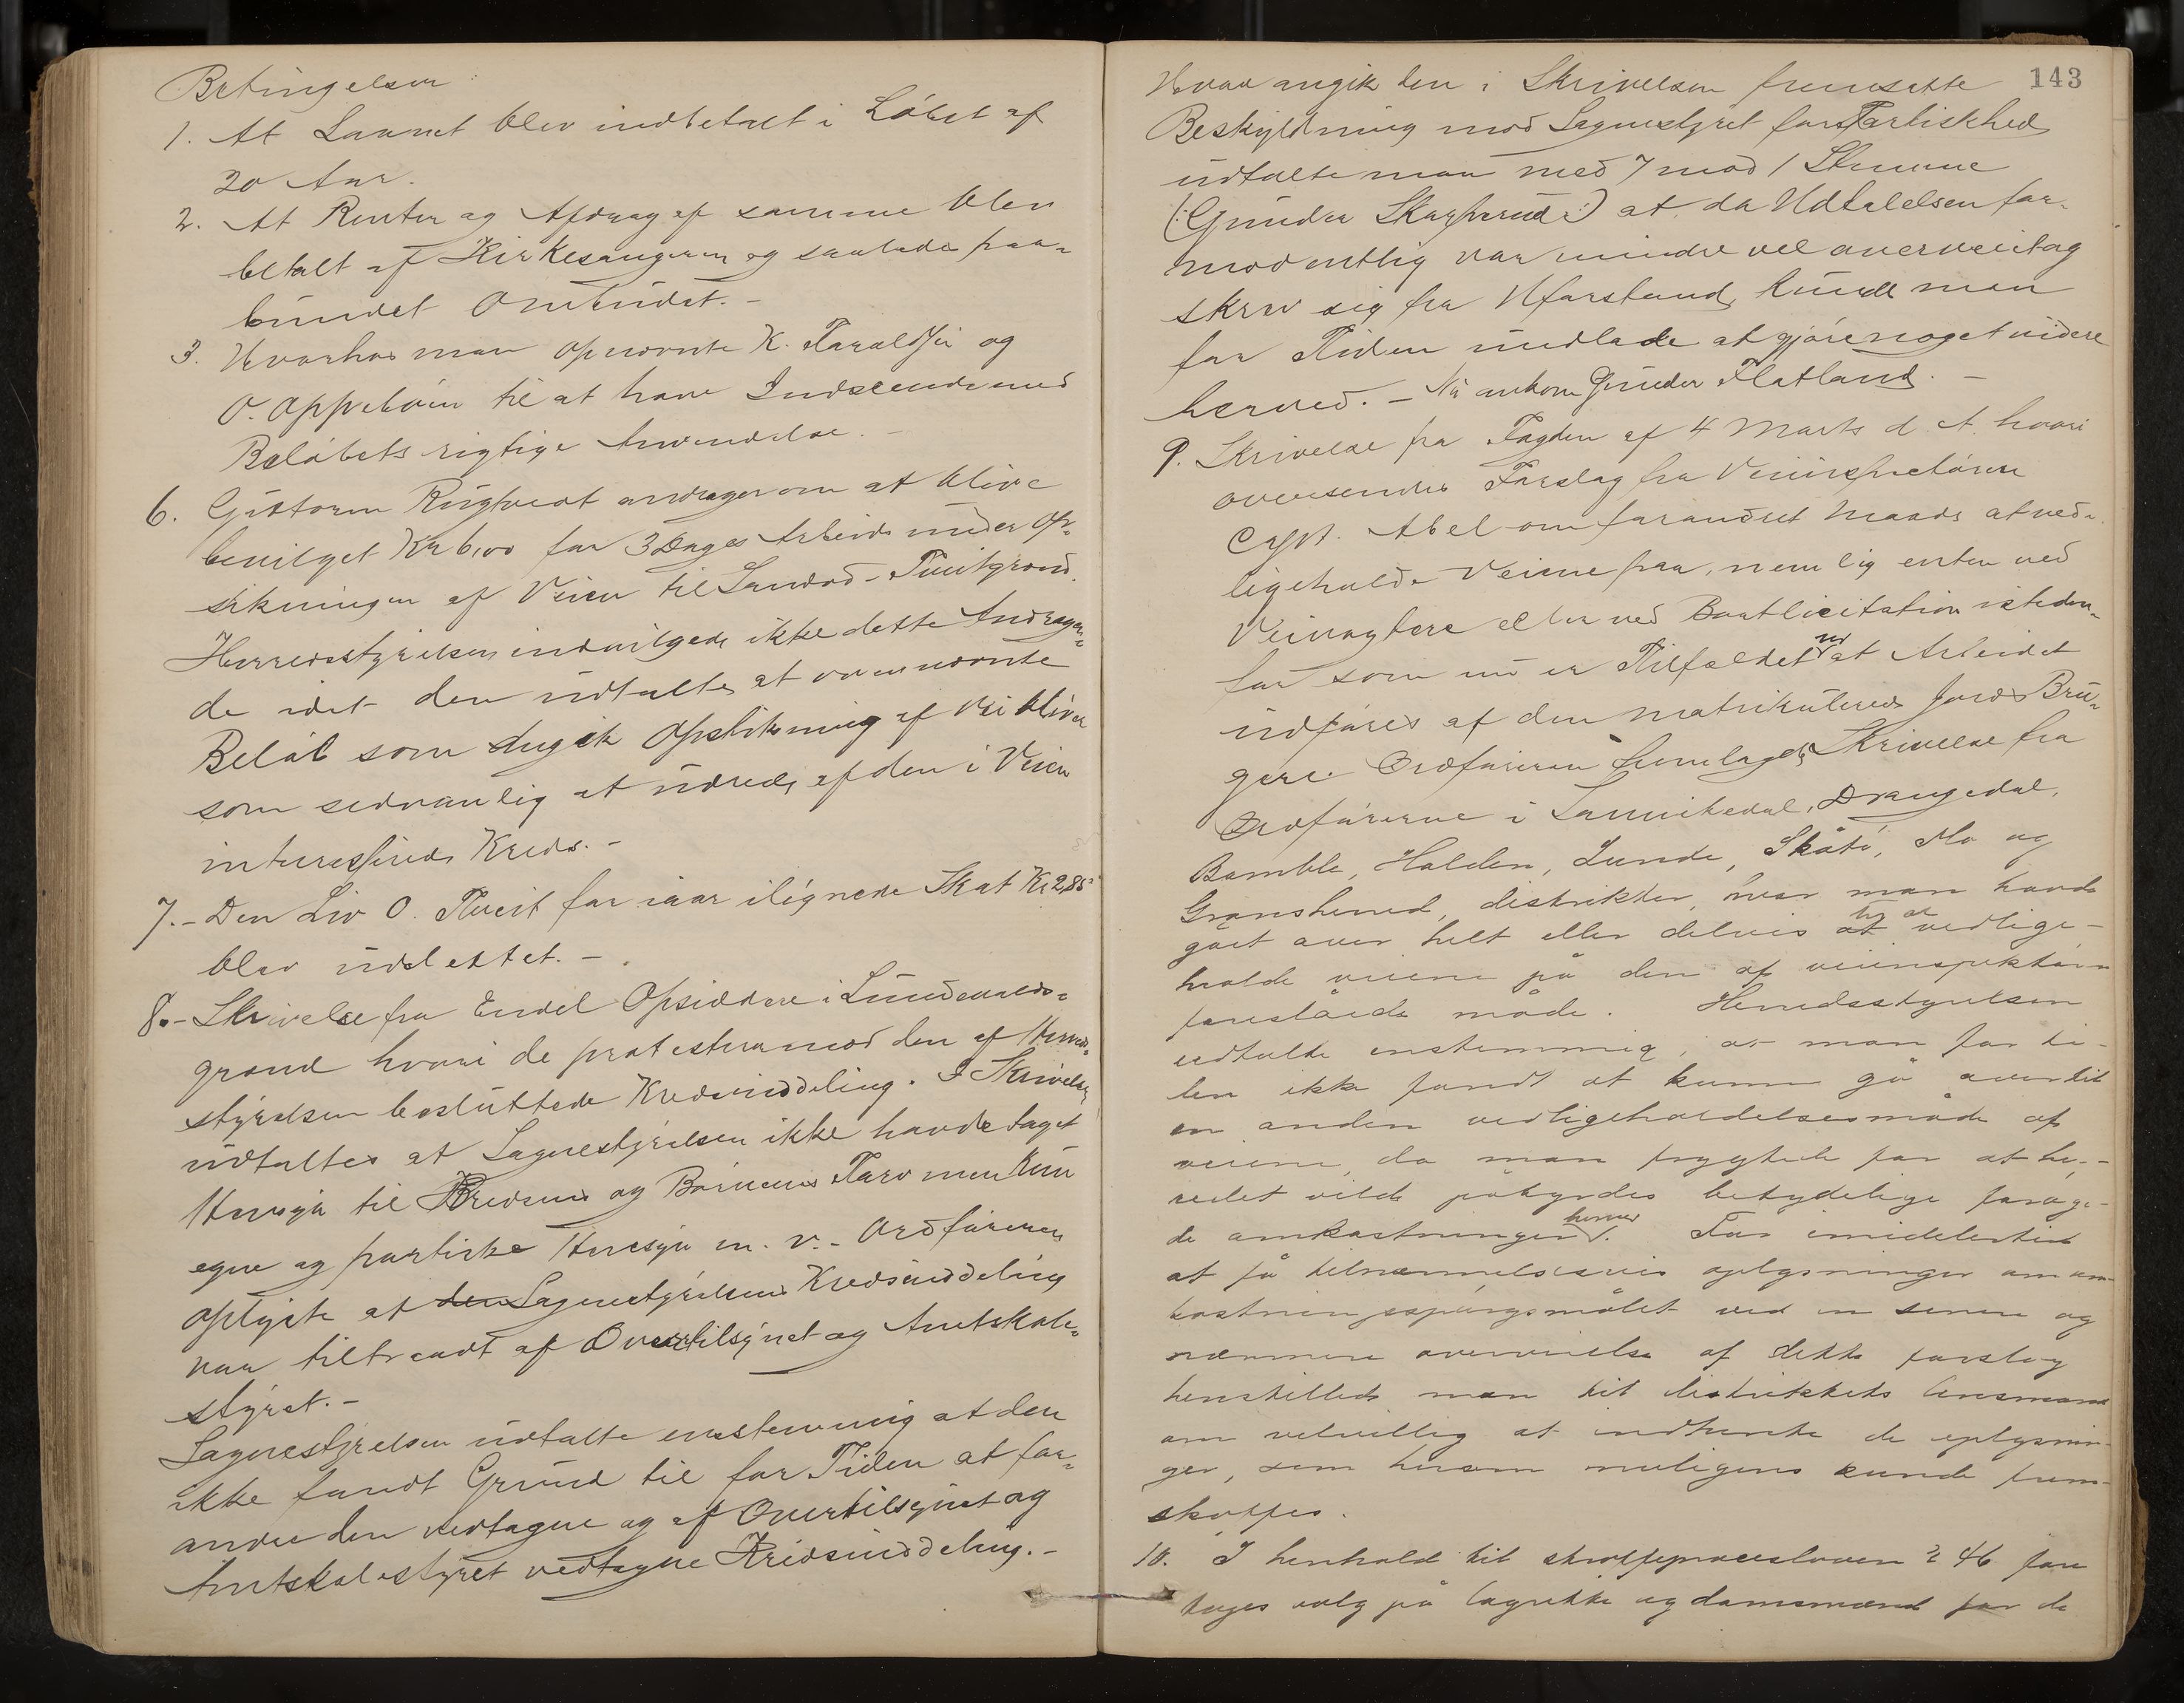 Betingelser
1. At Laanet blev indbetalt i Løbet af
20 Aar.
2. At Renter og Afdrag af samme blev
betalt af Kirkesangeren og saaledes paa-
bundet Ombudet. -
3. Hvorhos man opnævnte K. Taraldsli og
O. Oppebøen til at have Indseende med
Beløbets rigtige Anvendelse. -
6. Guttorm Rugtveit andrager om at blive
bevilget Kr 6,00 for 3 Dages Arbeide under Op-
stikningen af Veien til Sandød-Tveitgrend.
Herredsstyrelsen indvilgede ikke dette Andragen-
de idet den udtalte, at ovennævnte
Beløb som angik Opstikning af Vei bliver
som sedvanlig at udrede af den i Veien
interesserede Kreds. -
7. - Den Liv O. Tveit for iaar ilignede Skat Kr 2,85
blev udslettet. -
8. - Skrivelse fra Endel Opsiddere i Lundevalds-
grend hvori de protesterer mod den af Herreds-
styrelsen besluttede Kredsinddeling. I Skrivelsen
udtaltes at Sognestyrelsen ikke havde taget
Hensyn til Kredsens og Børnenes Tarv men kun
egne og partiske Hensyn m. v. - Ordføreren
oplyste at den Sognestyrelsens Kredsinddeling
var tiltraadt af Overtilsynet og Amtskole-
styret. -
Sognestyrelsen udtalte enstemmig at den
ikke fandt Grund til for Tiden at for-
andre den vedtagne og af Overtilsynet og
Amtskolestyret vedtagne Kredsinddeling. -
143
Hvad angik den i Skrivelsen fremsatte
Beskyldning mod Sognestyret for Partiskhed
udtalte man med 7 mod 1 Stemme
(Gunder ) at da Udtalelsen for-
modentlig var mindre vel overveiet og
skrev sig fra Uforstand, kunde man
for Tiden undlade at gjøre noget videre
herved. - Nu ankom Gunder Flatland. -
9. Skrivelse fra Fogden af 4 Marts d. A. hvori
oversendes Forslag fra Veiinspektøren
Capt. Abel om forandret Maade at ved-
ligeholde Veiene paa, nemlig enten ved
Veivogtere eller ved Bortlicitation isteden-
for som nu er Tilfældet ved at Arbeidet
udføres af den matrikulerede Jords Bru-
gere. Ordføreren fremlagde Skrivelse fra
Ordførerne i Sannikedal, Drangedal,
Bamble, Holden, Lunde, Skåtø, Mo og
Gransherred, distrikter, hvor man havde
gået over helt eller delvis til at vedlige-
holde veiene på den af veiinspektøren
foreslåede måde. Herredsstyrelsen
udtalte enstemmig, at man for ti-
den ikke fandt at kunne gå over til
en anden vedligeholdelsesmåde af
veiene, da man frygtede for at her-
redet vilde påbyrdes betydelige forøge-
de omkostninger herved. For imidlertid
at få tilnærmelsesvis oplysninger om om-
kostningsspørgsmålet ved en senere og
nærmere overveielse af dette forslag
henstillede man til distriktets lensmand
om velvillig at indhente de oplysnin-
ger, som herom muligens kunde frem-
skaffes.
10. I henhold til straffeprocesloven § 46 fore
toges valg på lagrette og domsmænd for de